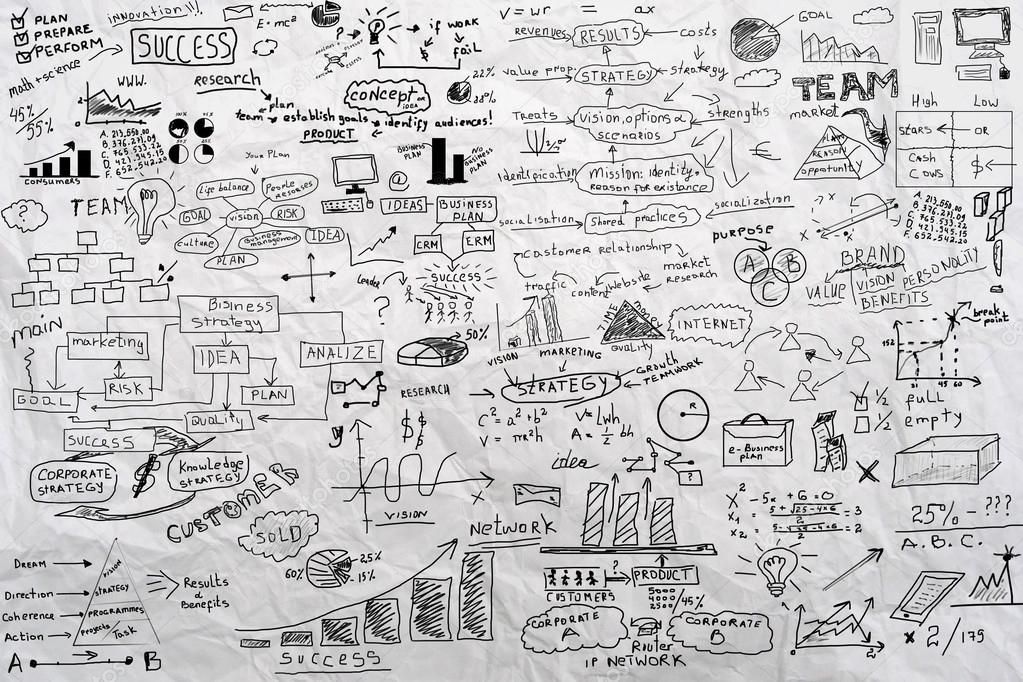 PLAN
PREPARE
PERFORM
INNOVATION!!!
E=mc²
SUCCESS
math+science
? if WORK
$ fail
V=wr = ax
revenues RESULTS costs
value prop. STRATEGY strategy
Treats Vision, options & scenarios strengths
Identification Mission: identity, reason for existance
€
socialisation Shared practices socialization
GOAL
TEAM
market
PLANS
REASON
opportunity
High Low
STARS OR
CASH COWS $
45%
55%
WWW.
research
plan
team establish goals identify audiences!
PRODUCT
CONCEPT or
IDEA
22%
88%
A. 213,550.00
B. 376.231.09
C. 765.533.22
D. 421.945.15
F. 652.542.20
CONSUMERS
BUSINESS PLAN
NO BUSINESS PLAN
your PLan
TEAM
Life balance
People resorses
GOAL
vision
RISK
culture
Business management
IDEA
PLAN
@
IDEAS
BUSINESS PLAN
CRM
ERM
SUCCESS
Leader
?
customer relationship
traffic
content
website
market research
TIME
QUALITY
INTERNET
PURPOSE
A B
C
A. 213,550.00
B. 376.231.09
C. 765.533.22
D. 421.945.15
F. 652.542.20
BRAND
VALUE
VISION PERSONOLITY
BENEFITS
break point
152
31 45 60
main
Bisiness Strategy
marketing
IDEA
ANALIZE
RISK
PLAN
GOOL
Quality
50%
VISION
MARKETING
GROWTH
TEAMWORK
RESEARCH
STRATEGY
$$
C²=a²+b² V=Lwh
V=πr²h A=½bh
R
idea
?
e-Business plan
½ full
½ empty
SUCCESS
CORPORATE STRATEGY
$
Knowledge STRATEGY
CUSTOMER
SOLD
y
X
VISION
NETWORK
X²-5x+6=0
X₁ 5+√25-4×6 =3
2
X₂ 5-√25-4×6 =2
2
25% - ???
A.B.C.
DREAM
Direction
Coherence
Action
VISION
STRATEGY
PROGRAMMES
Projects/Task
Results & Benefits
A B
60%
25%
15%
SUCCESS
CUSTOMERS
?
PRODUCT
5000
4000
2500 /45%
CORPORATE A
CORPORATE B
Router
IP NETWORK
x 2/175